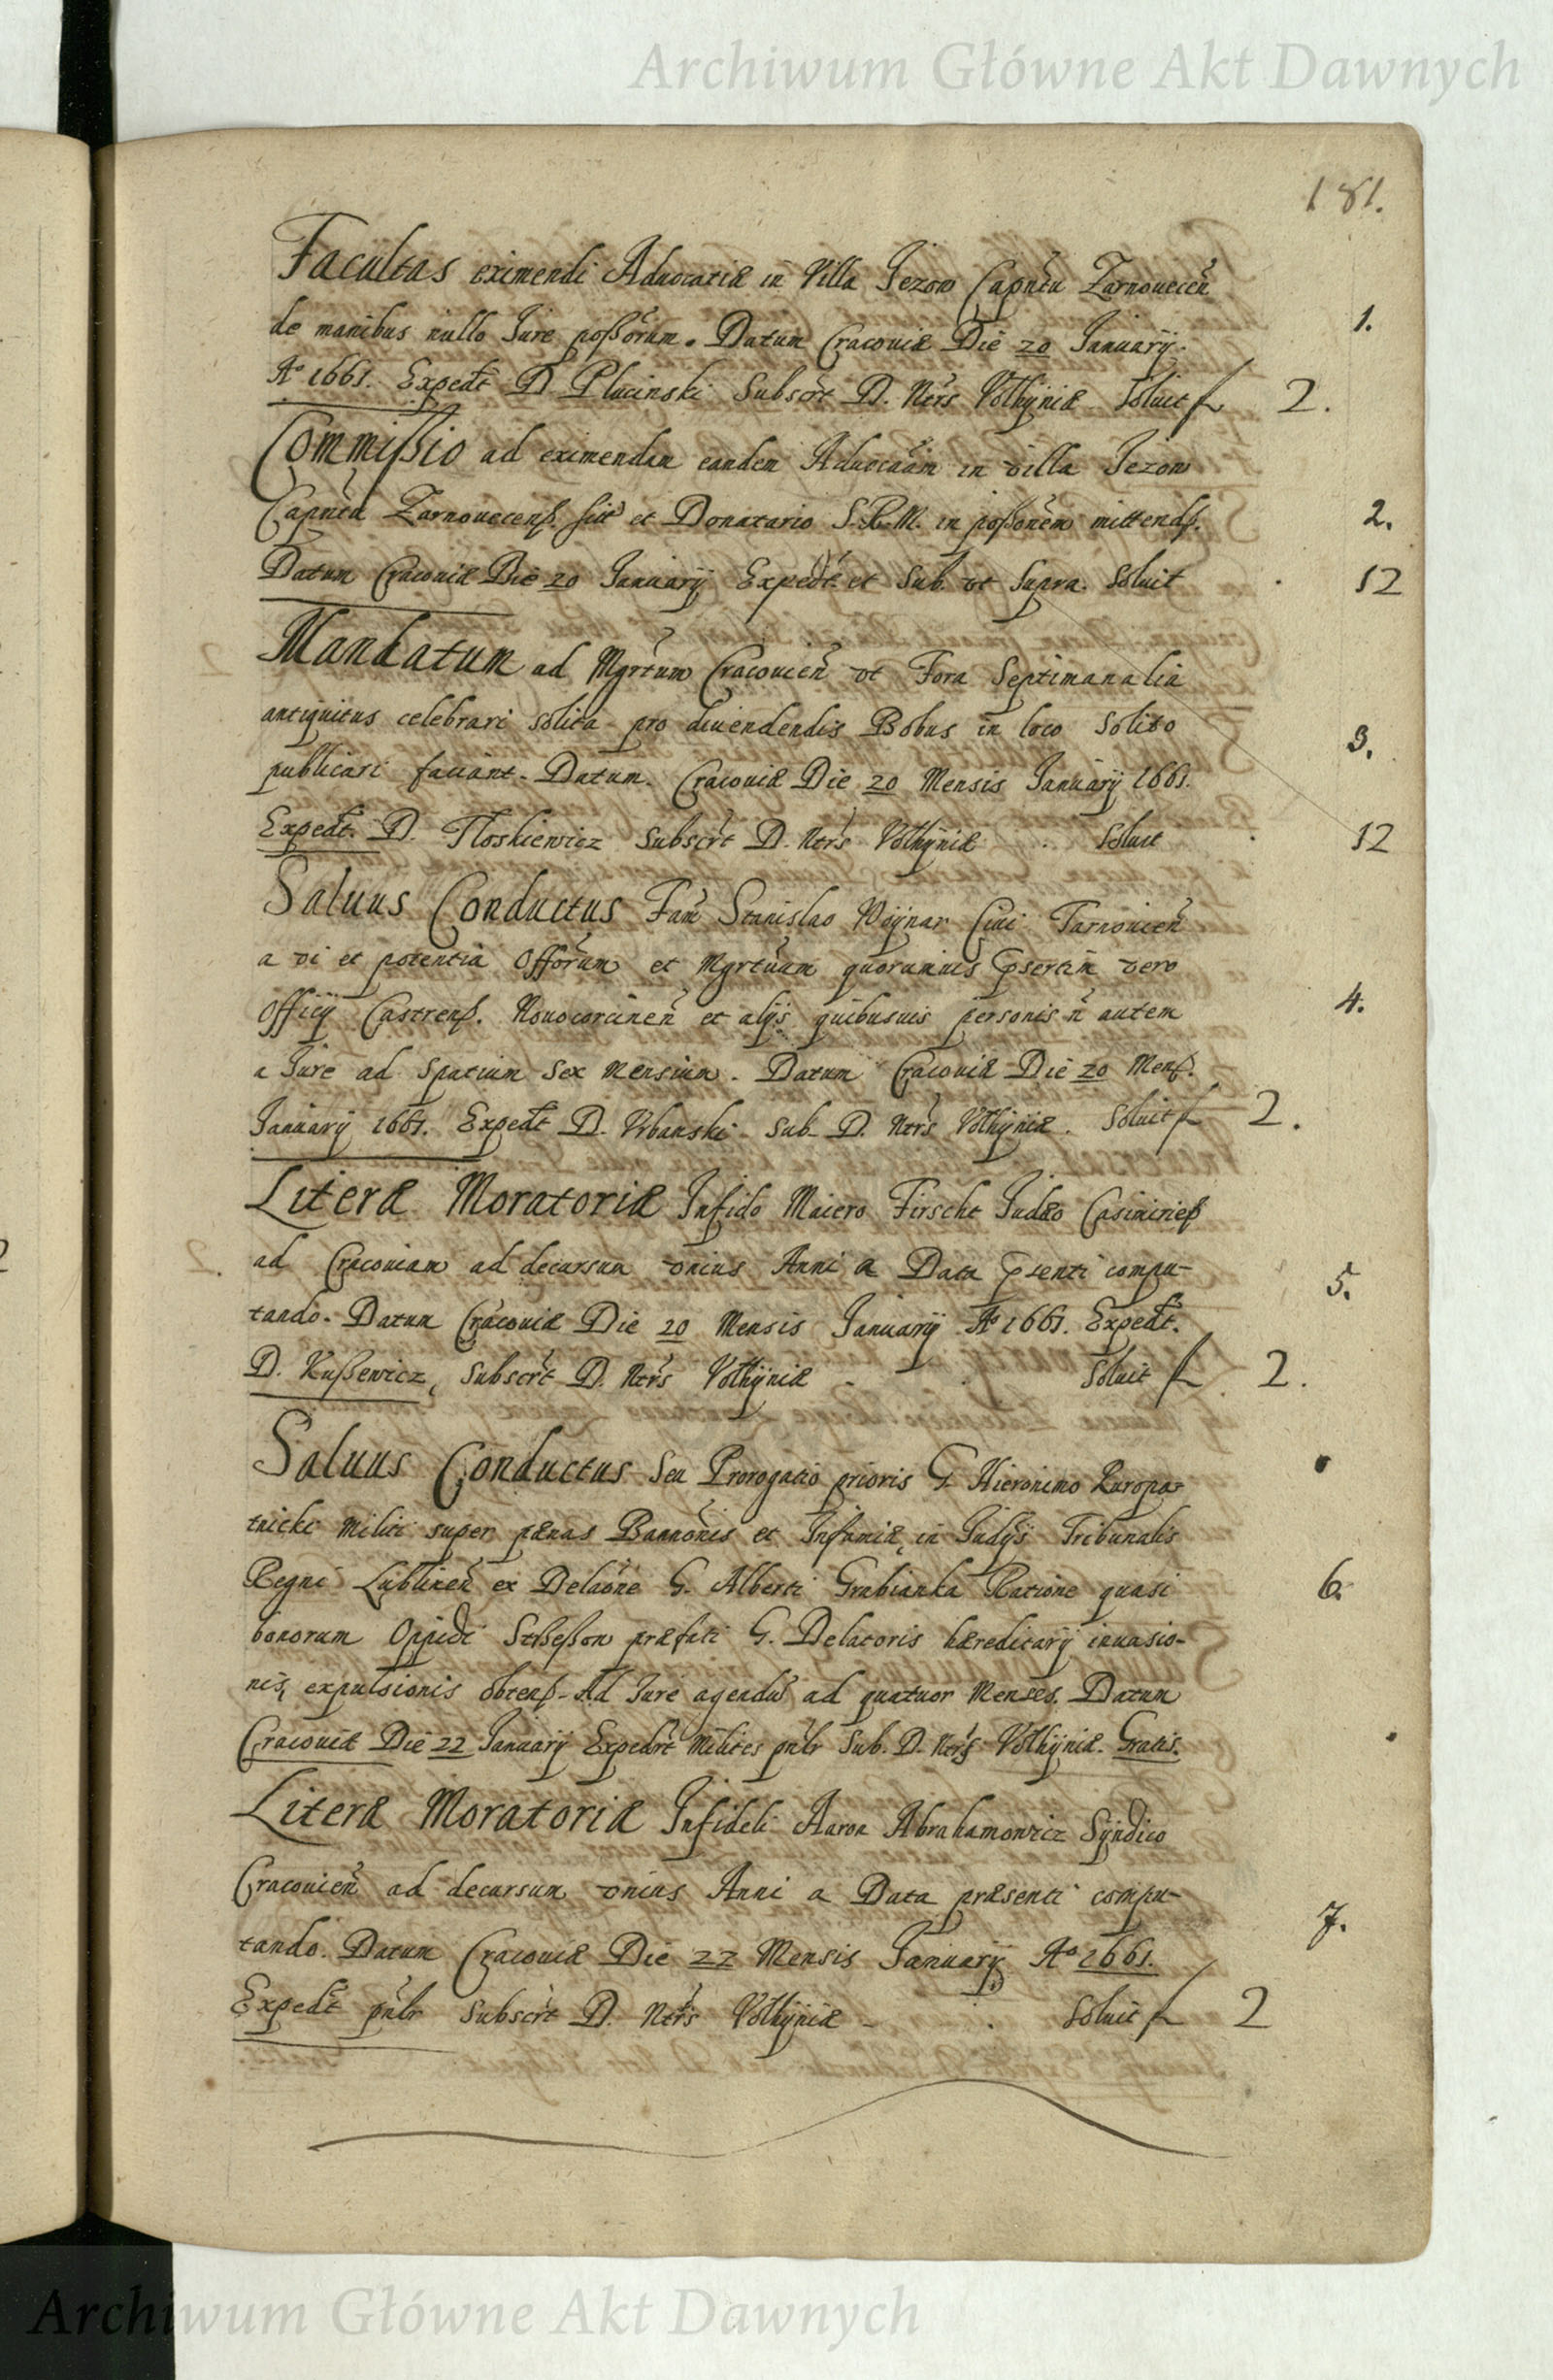 Archiwum Główne Akt Dawnych
181.
Facultas eximendi Aduocatiæ in Villa Jezow Capntu Zarnouecen
de manibus nullo Jure poßorum. Datum Cracouiæ Die 20 Januarij. 1.
Aº 1661. Expedt D. Plucinski Subscrt D. Ntrs Volhÿniæ Soluit f 2.
Commissio ad eximendam eandem Aduocaam in villa Jezow
Capntu Zarnouecens. et Donatario S.R.M. in poßonem mittend. 2.
Datum Cracouiæ Die 20 Januarij Expedt et Sub. vt Supra. Soluit 12
Mandatum ad Mgrtum Cracouien vt Fora Septimanalia
antiquitus celebrari solita pro diuendendis Bobus in loco Solito 3.
publicari faciant. Datum. Cracouiæ Die 20 Mensis Januarij 1661.
Expedt. D. Floskiewicz Subscrt D. Ntrs Volhÿniæ Soluit 12
Saluus Conductus Fam Stanislao Woÿnar Ciui Tarnouien
a vi et potentia Offorum et Mgrtuum quorumuis psertim vero
Officij Castrens. Nouocorcinen et alijs quibusuis personis n autem 4.
a Jure ad Spatium Sex Mensium. Datum Cracouiæ Die 20 Mens.
Januarij 1661. Expedt D. Vrbanski Sub. D. Ntrs Volhÿniæ. Soluit f 2.
Literæ Moratoriæ Infido Maiero Firscht Judæo Casimirien
ad Cracouiam ad decursum vnius Anni a Data psenti compu- 5.
tando. Datum Cracouiæ Die 20 Mensis Januarij Aº 1661. Expedt.
D. Kußewicz, Subscrt D. Ntrs Volhÿniæ Soluit f 2.
Saluus Conductus Seu Prorogatio prioris G. Hieronimo Ruropa-
tnicki Militi super pænas Bannonis et Infamiæ, in Judijs Tribunalis
Regni Lublinen ex Delaone G. Alberti Grabianka Ratione quasi 6.
bonorum Oppidi præfati G. Delatoris hæreditarij inuasio-
nis, expulsionis obtens. Ad Jure agendu ad quatuor Menses. Datum
Cracouiæ Die 22 Januarij Expedrt Milites pnlr Sub. D. Ntrs Volhÿniæ. Gratis.
Literæ Moratoriæ Infideli Aaron Abrahamowicz Sÿndico
Cracouien ad decursum vnius Anni a Data præsenti compu- 7.
tando. Datum Cracouiæ Die 22 Mensis Januarij Aº 1661.
Expedt pnlr Subscrt D. Ntrs Volhÿniæ Soluit f 2
Archiwum Główne Akt Dawnych